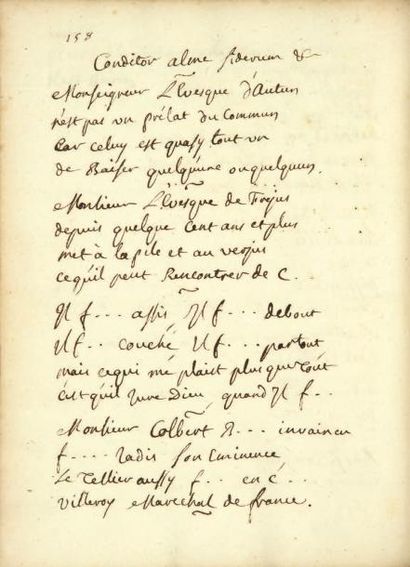 158
Conditor alme siderum &
Monseigneur L'Evesque d'Autun
n'est pas un prélat du Commun
Car celuy est quasy tout un
de Baiser quelqu'une ou quelquun.
Monsieur L'Evesque de Frejus
depuis quelque Cent ans et plus
met à la pile et au verjus
ce qu'il peut Rencontrer de C..
Il f... assis Il f... debout
Il f.. couché Il f... partout
mais ce qui me plaist plus que tout
c'est qu'il jure Dieu, quand Il f..
Monsieur Colbert
f.... Jadis son Eminence
Le Tellier aussy f.. en c..
Villeroy Marechal de france.